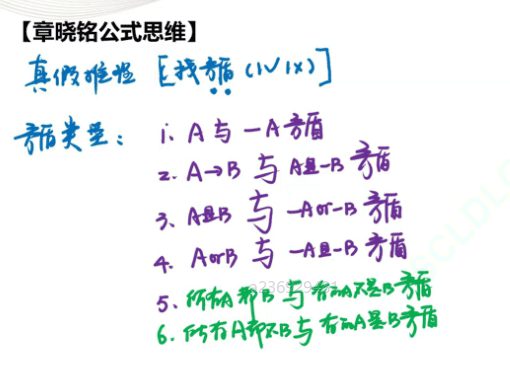 【章晓铭公式思维】
真假推理 [找矛盾(1√1×)]
矛盾类型：1. A与-A矛盾
2. A→B与A且-B矛盾
3. A且B与-Aor-B矛盾
4. AorB与-A且-B矛盾
5. 所有A都B与有的A不是B矛盾
6. 所有A都不B与有的A是B矛盾